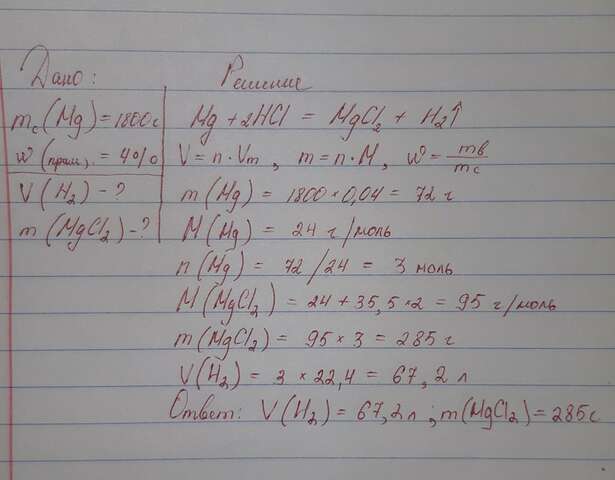 Дано:
mc(Mg) = 1800г
w(прим.) = 4%
V(H₂) - ?
m(MgCl₂) - ?
Решение
Mg + 2HCl = MgCl₂ + H₂↑
V = n · Vm , m = n · M , w = mв/mc
m(Mg) = 1800 × 0,04 = 72 г
M(Mg) = 24 г/моль
n(Mg) = 72/24 = 3 моль
M(MgCl₂) = 24 + 35,5 × 2 = 95 г/моль
m(MgCl₂) = 95 × 3 = 285 г
V(H₂) = 3 × 22,4 = 67,2 л
Ответ: V(H₂) = 67,2л ; m(MgCl₂) = 285г